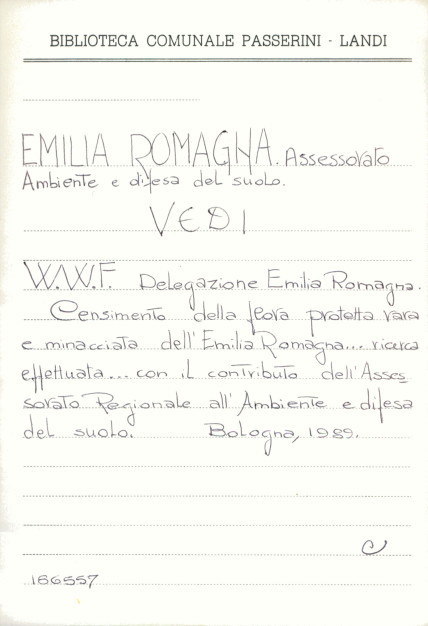 BIBLIOTECA COMUNALE PASSERINI - LANDI
EMILIA ROMAGNA. Assessorato
Ambiente e difesa del suolo.
VEDI
W.W.F. Delegazione Emilia Romagna.
Censimento della flora protetta rara
e minacciata dell'Emilia Romagna... ricerca
effettuata... con il contributo dell'Asses=
sorato Regionale all'Ambiente e difesa
del suolo. Bologna, 1989.
166557